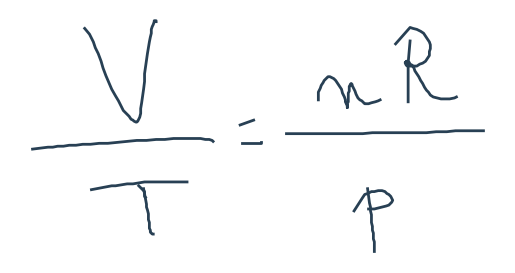 V/T = nR/p